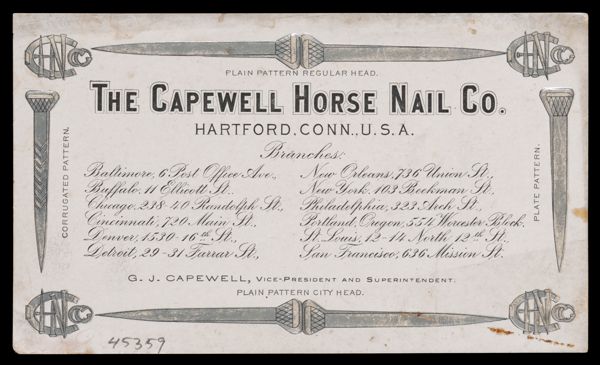 PLAIN PATTERN REGULAR HEAD.
THE CAPEWELL HORSE NAIL CO.
HARTFORD, CONN., U.S.A.
CORRUGATED PATTERN.
PLATE PATTERN.
Branches:
Baltimore, 6 Post Office Ave.,
Buffalo, 11 Ellicott St.,
Chicago, 238-40 Randolph St.,
Cincinnati, 720 Main St.,
Denver, 1530-16th St.,
Detroit, 29-31 Farrar St.,
New Orleans, 736 Union St.,
New York, 103 Beekman St.,
Philadelphia, 323 Arch St.,
Portland, Oregon, 554 Worcester Block,
St. Louis, 12-14 North 12th St.,
San Francisco, 636 Mission St.
G. J. CAPEWELL, VICE-PRESIDENT AND SUPERINTENDENT.
PLAIN PATTERN CITY HEAD.
45359